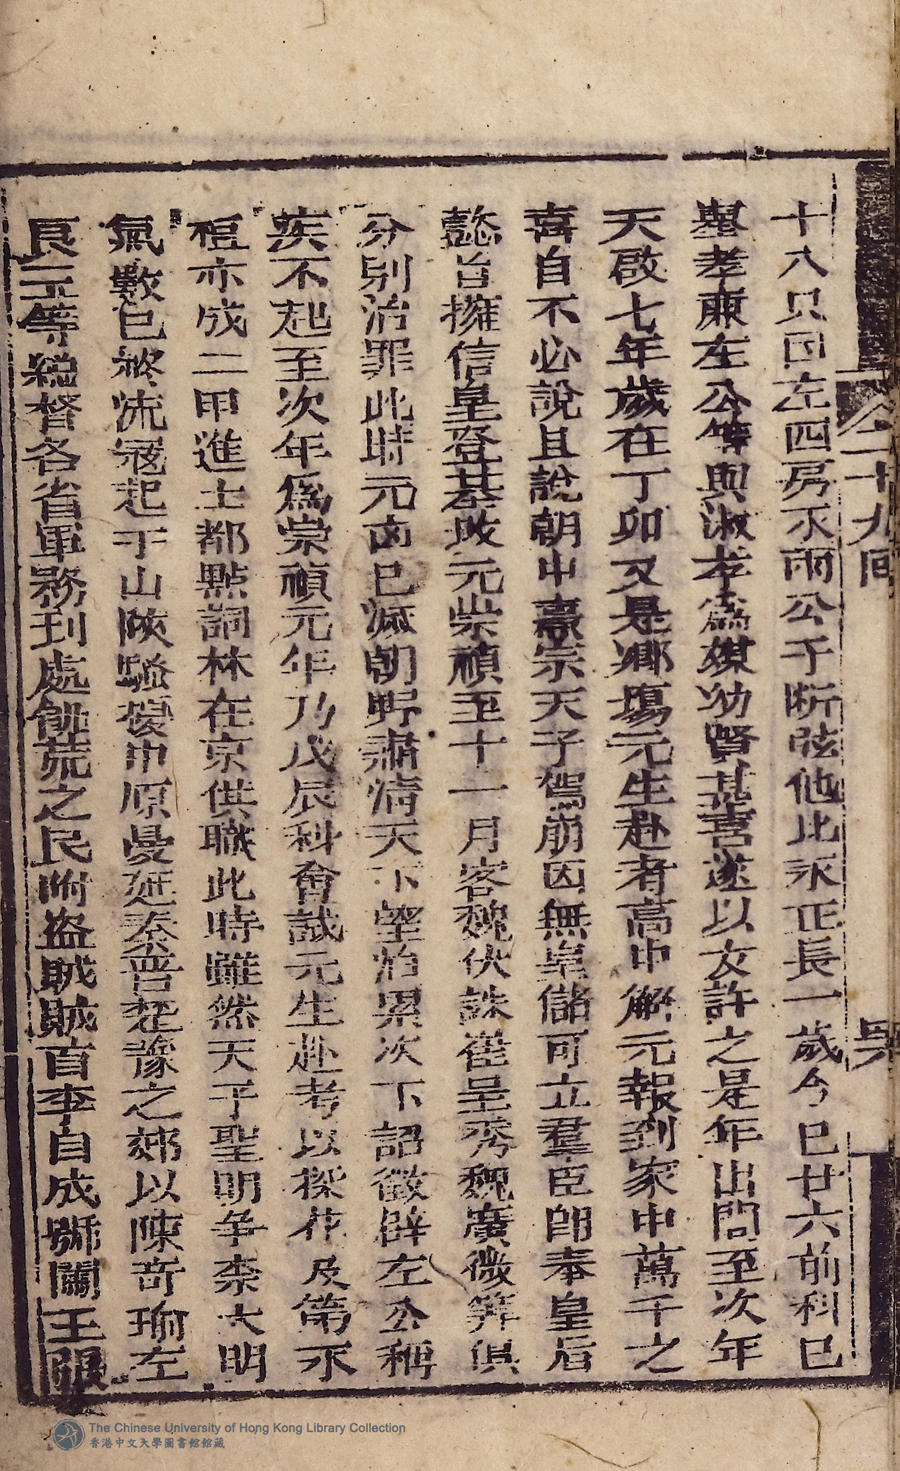 十八只因左四房永雨公子断弦他比永正長一歲今已廿六前科已
舉孝廉左公等與淑孝為媒幼賢甚喜遂以女許之是年出閣至次年
天啟七年歲在丁卯又是鄉塲元生赴考高中解元報到家中萬千之
喜自不必說且說朝中熹宗天子駕崩因無皇儲可立羣臣卽奉皇后
懿旨擁信皇登基攺元崇禎至十一月客魏伏誅崔呈秀魏廣微等俱
分别治罪此時元凶已滅朝野肅清天下望治累次下詔徵辟左公稱
疾不起至次年爲崇禎元年乃戊辰科會試元生赴考以探花及第永
桓亦成二甲進士都點詞林在京供職此時雖然天子聖明爭柰大明
氣數已終流寇起于山陝騷擾中原曼延秦晋楚豫之郊以陳奇瑜左
良玉等總督各省軍務到處饑荒之民附盜賊賊首李自成號闖王張
二十九回